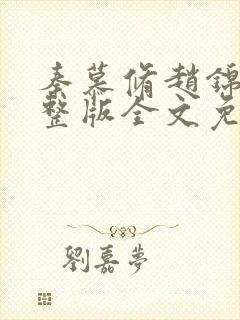 秦慕脩趙錦
整版全文免
劉嘉夢